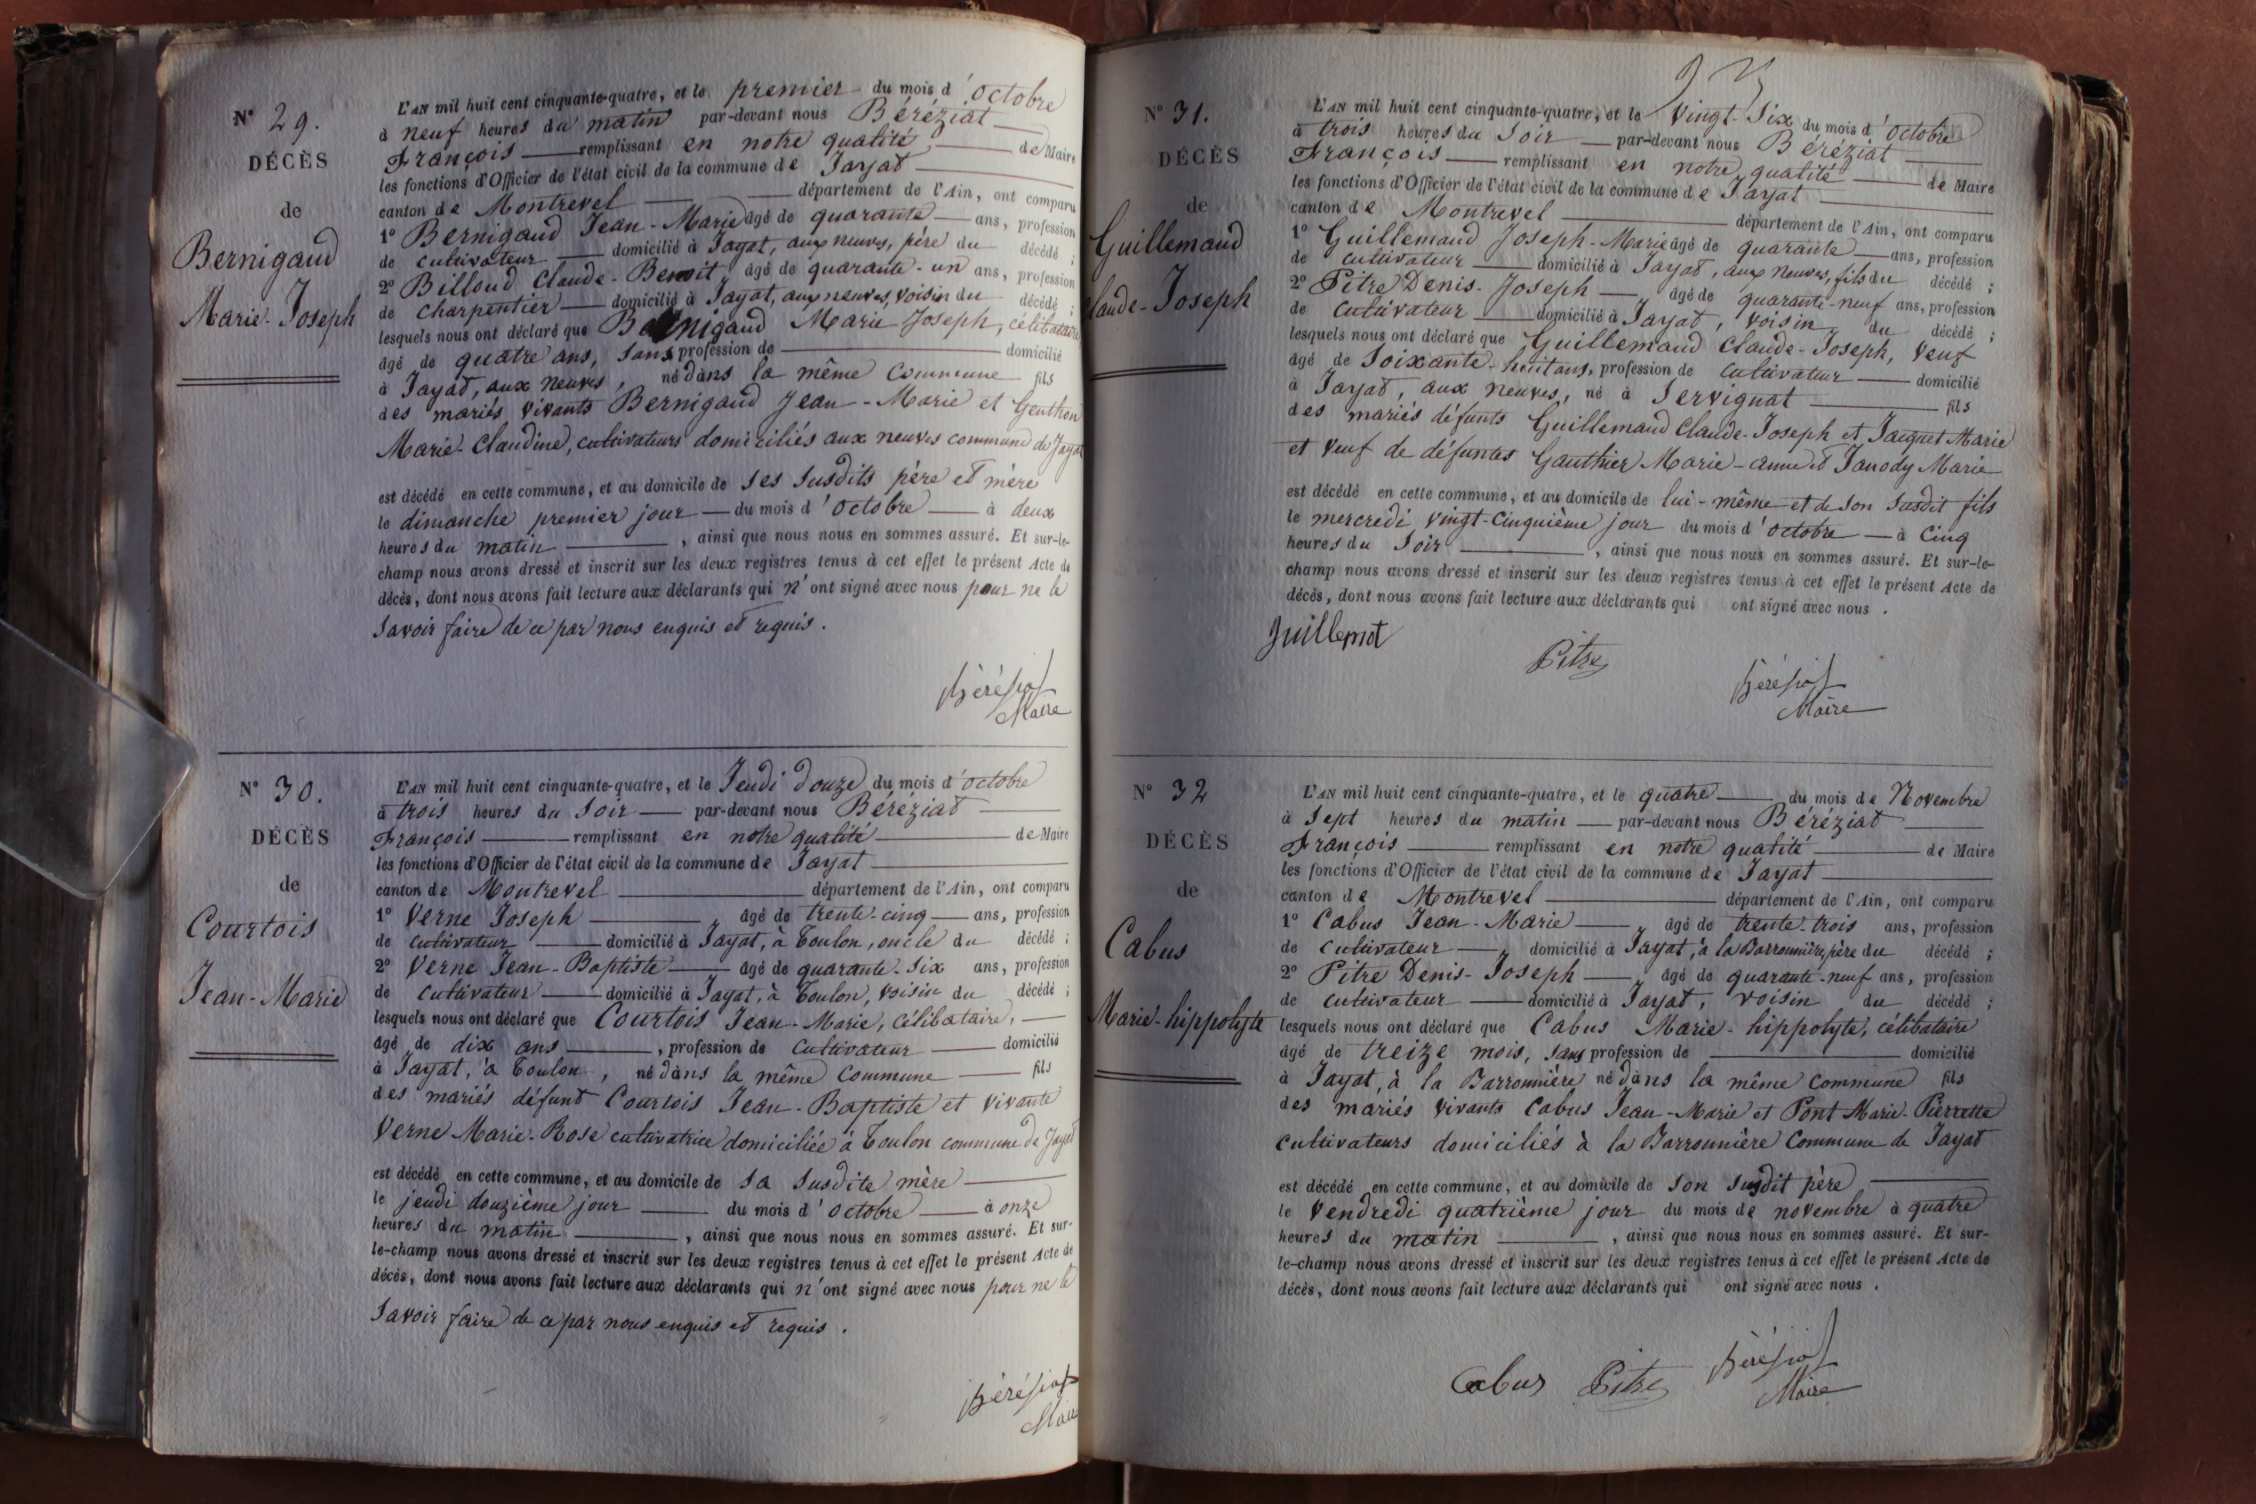 N° 29.
DÉCÈS
de
Bernigaud
Marie-Joseph
L'AN mil huit cent cinquante-quatre, et le premier du mois d'octobre
à neuf heures du matin par-devant nous Béréziat
François remplissant en notre qualité de Maire
les fonctions d'Officier de l'état civil de la commune de Jayat
canton de Montrevel département de l'Ain, ont comparu
1° Bernigaud Jean-Marie âgé de quarante ans, profession
de cultivateur domicilié à Jayat, aux neuves, père du décédé ;
2° Billoud Claude-Benoit âgé de quarante-un ans, profession
de charpentier domicilié à Jayat, aux neuves, voisin du décédé ;
lesquels nous ont déclaré que Bernigaud Marie Joseph, célibataire
âgé de quatre ans, sans profession de domicilié
à Jayat, aux neuves, né dans la même commune fils
des mariés vivants Bernigaud Jean-Marie et Genthon
Marie-Claudine, cultivateurs domiciliés aux neuves commune de Jayat
est décédé en cette commune, et au domicile de ses susdits père et mère
le dimanche premier jour du mois d'octobre à deux
heures du matin , ainsi que nous nous en sommes assuré. Et sur-le-
champ nous avons dressé et inscrit sur les deux registres tenus à cet effet le présent Acte de
décès, dont nous avons fait lecture aux déclarants qui n'ont signé avec nous pour ne le
savoir faire de ce par nous enquis et requis.
Béréziat
Maire
N° 30.
DÉCÈS
de
Courtois
Jean-Marie
L'AN mil huit cent cinquante-quatre, et le Jeudi douze du mois d'octobre
à trois heures du soir par-devant nous Béréziat
François remplissant en notre qualité de Maire
les fonctions d'Officier de l'état civil de la commune de Jayat
canton de Montrevel département de l'Ain, ont comparu
1° Verne Joseph âgé de trente-cinq ans, profession
de cultivateur domicilié à Jayat, à Toulon, oncle du décédé ;
2° Verne Jean-Baptiste âgé de quarante-six ans, profession
de cultivateur domicilié à Jayat, à Toulon, voisin du décédé ;
lesquels nous ont déclaré que Courtois Jean-Marie, célibataire,
âgé de dix ans , profession de cultivateur domicilié
à Jayat, à Toulon, né dans la même commune fils
des mariés défunt Courtois Jean-Baptiste et vivante
Verne Marie-Rose cultivatrice domiciliée à Toulon commune de Jayat
est décédé en cette commune, et au domicile de sa susdite mère
le jeudi douzième jour du mois d'octobre à onze
heures du matin , ainsi que nous nous en sommes assuré. Et sur-
le-champ nous avons dressé et inscrit sur les deux registres tenus à cet effet le présent Acte de
décès, dont nous avons fait lecture aux déclarants qui n'ont signé avec nous pour ne le
savoir faire de ce par nous enquis et requis.
Béréziat
Maire
N° 31.
DÉCÈS
de
Guillemaud
Claude-Joseph
L'AN mil huit cent cinquante-quatre, et le vingt-six du mois d'octobre
à trois heures du soir par-devant nous Béréziat
François remplissant en notre qualité de Maire
les fonctions d'Officier de l'état civil de la commune de Jayat
canton de Montrevel département de l'Ain, ont comparu
1° Guillemaud Joseph-Marie âgé de quarante ans, profession
de cultivateur domicilié à Jayat, aux neuves, fils du décédé ;
2° Pitre Denis-Joseph âgé de quarante-neuf ans, profession
de cultivateur domicilié à Jayat, voisin du décédé ;
lesquels nous ont déclaré que Guillemaud Claude-Joseph, veuf
âgé de soixante-huit ans, profession de cultivateur domicilié
à Jayat, aux neuves, né à Servignat fils
des mariés défunts Guillemaud Claude-Joseph et Marie
et veuf de défuntes Gauthier Marie-anne et Janody Marie
est décédé en cette commune, et au domicile de lui-même et de son susdit fils
le mercredi vingt-cinquième jour du mois d'octobre à cinq
heures du soir , ainsi que nous nous en sommes assuré. Et sur-le-
champ nous avons dressé et inscrit sur les deux registres tenus à cet effet le présent Acte de
décès, dont nous avons fait lecture aux déclarants qui ont signé avec nous.
Guillemot Pitre Béréziat
Maire
N° 32
DÉCÈS
de
Cabus
Marie-hippolyte
L'AN mil huit cent cinquante-quatre, et le quatre du mois de Novembre
à sept heures du matin par-devant nous Béréziat
François remplissant en notre qualité de Maire
les fonctions d'Officier de l'état civil de la commune de Jayat
canton de Montrevel département de l'Ain, ont comparu
1° Cabus Jean-Marie âgé de trente-trois ans, profession
de cultivateur domicilié à Jayat, à la Barronnière, père du décédé ;
2° Pitre Denis-Joseph âgé de quarante-neuf ans, profession
de cultivateur domicilié à Jayat, voisin du décédé ;
lesquels nous ont déclaré que Cabus Marie-hippolyte, célibataire
âgé de treize mois, sans profession de domicilié
à Jayat, à la Barronnière né dans la même commune fils
des mariés vivants Cabus Jean-Marie et Pont Marie-Pierrette
cultivateurs domiciliés à la Barronnière commune de Jayat
est décédé en cette commune, et au domicile de son susdit père
le vendredi quatrième jour du mois de novembre à quatre
heures du matin , ainsi que nous nous en sommes assuré. Et sur-
le-champ nous avons dressé et inscrit sur les deux registres tenus à cet effet le présent Acte de
décès, dont nous avons fait lecture aux déclarants qui ont signé avec nous.
Cabus Pitre Béréziat
Maire